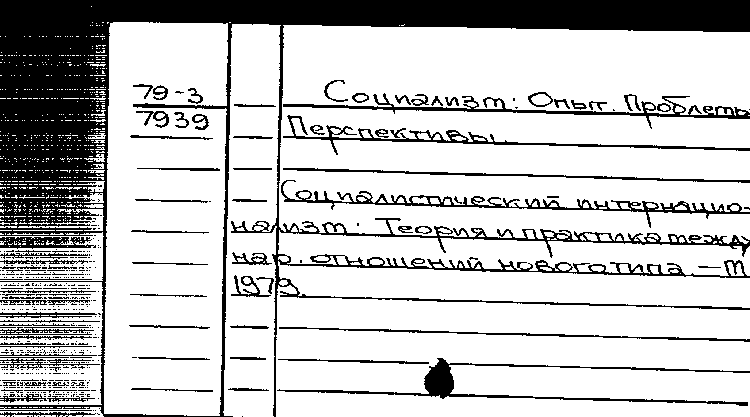 79-3 Социализм: Опыт. Проблемы
7939 Перспективы.
Социалистический интернацио-
нализм: Теория и практика межд
нар. отношений нового типа. – М
1979.